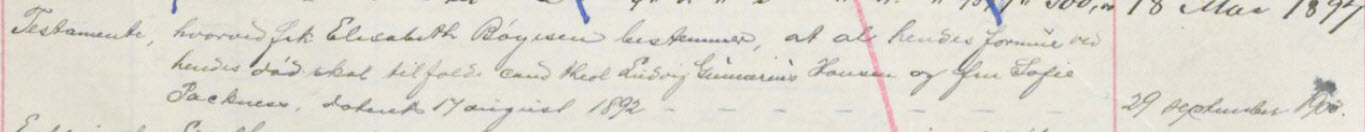 18 Mai 1897
Testamente, hvorved frk Elisabeth Bøyesen bestemmer, at al hendes formue ved
hendes død skal tilfalde cand theol Ludvig Gunnerius Hansen og fru Sofie
Packness. datert 17 august 1892 - - - - - - - 29 september